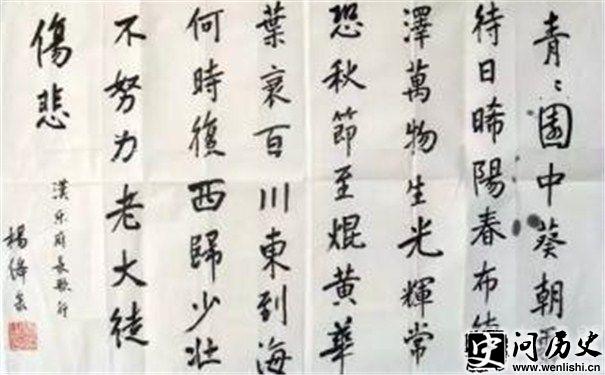 青〻園中葵朝露
待日晞陽春布德
澤萬物生光輝常
恐秋節至焜黄華
葉衰百川東到海
何時復西歸少壯
不努力老大徒
傷悲
漢乐府長歌行
楊絳
问历史
www.wenlishi.cn